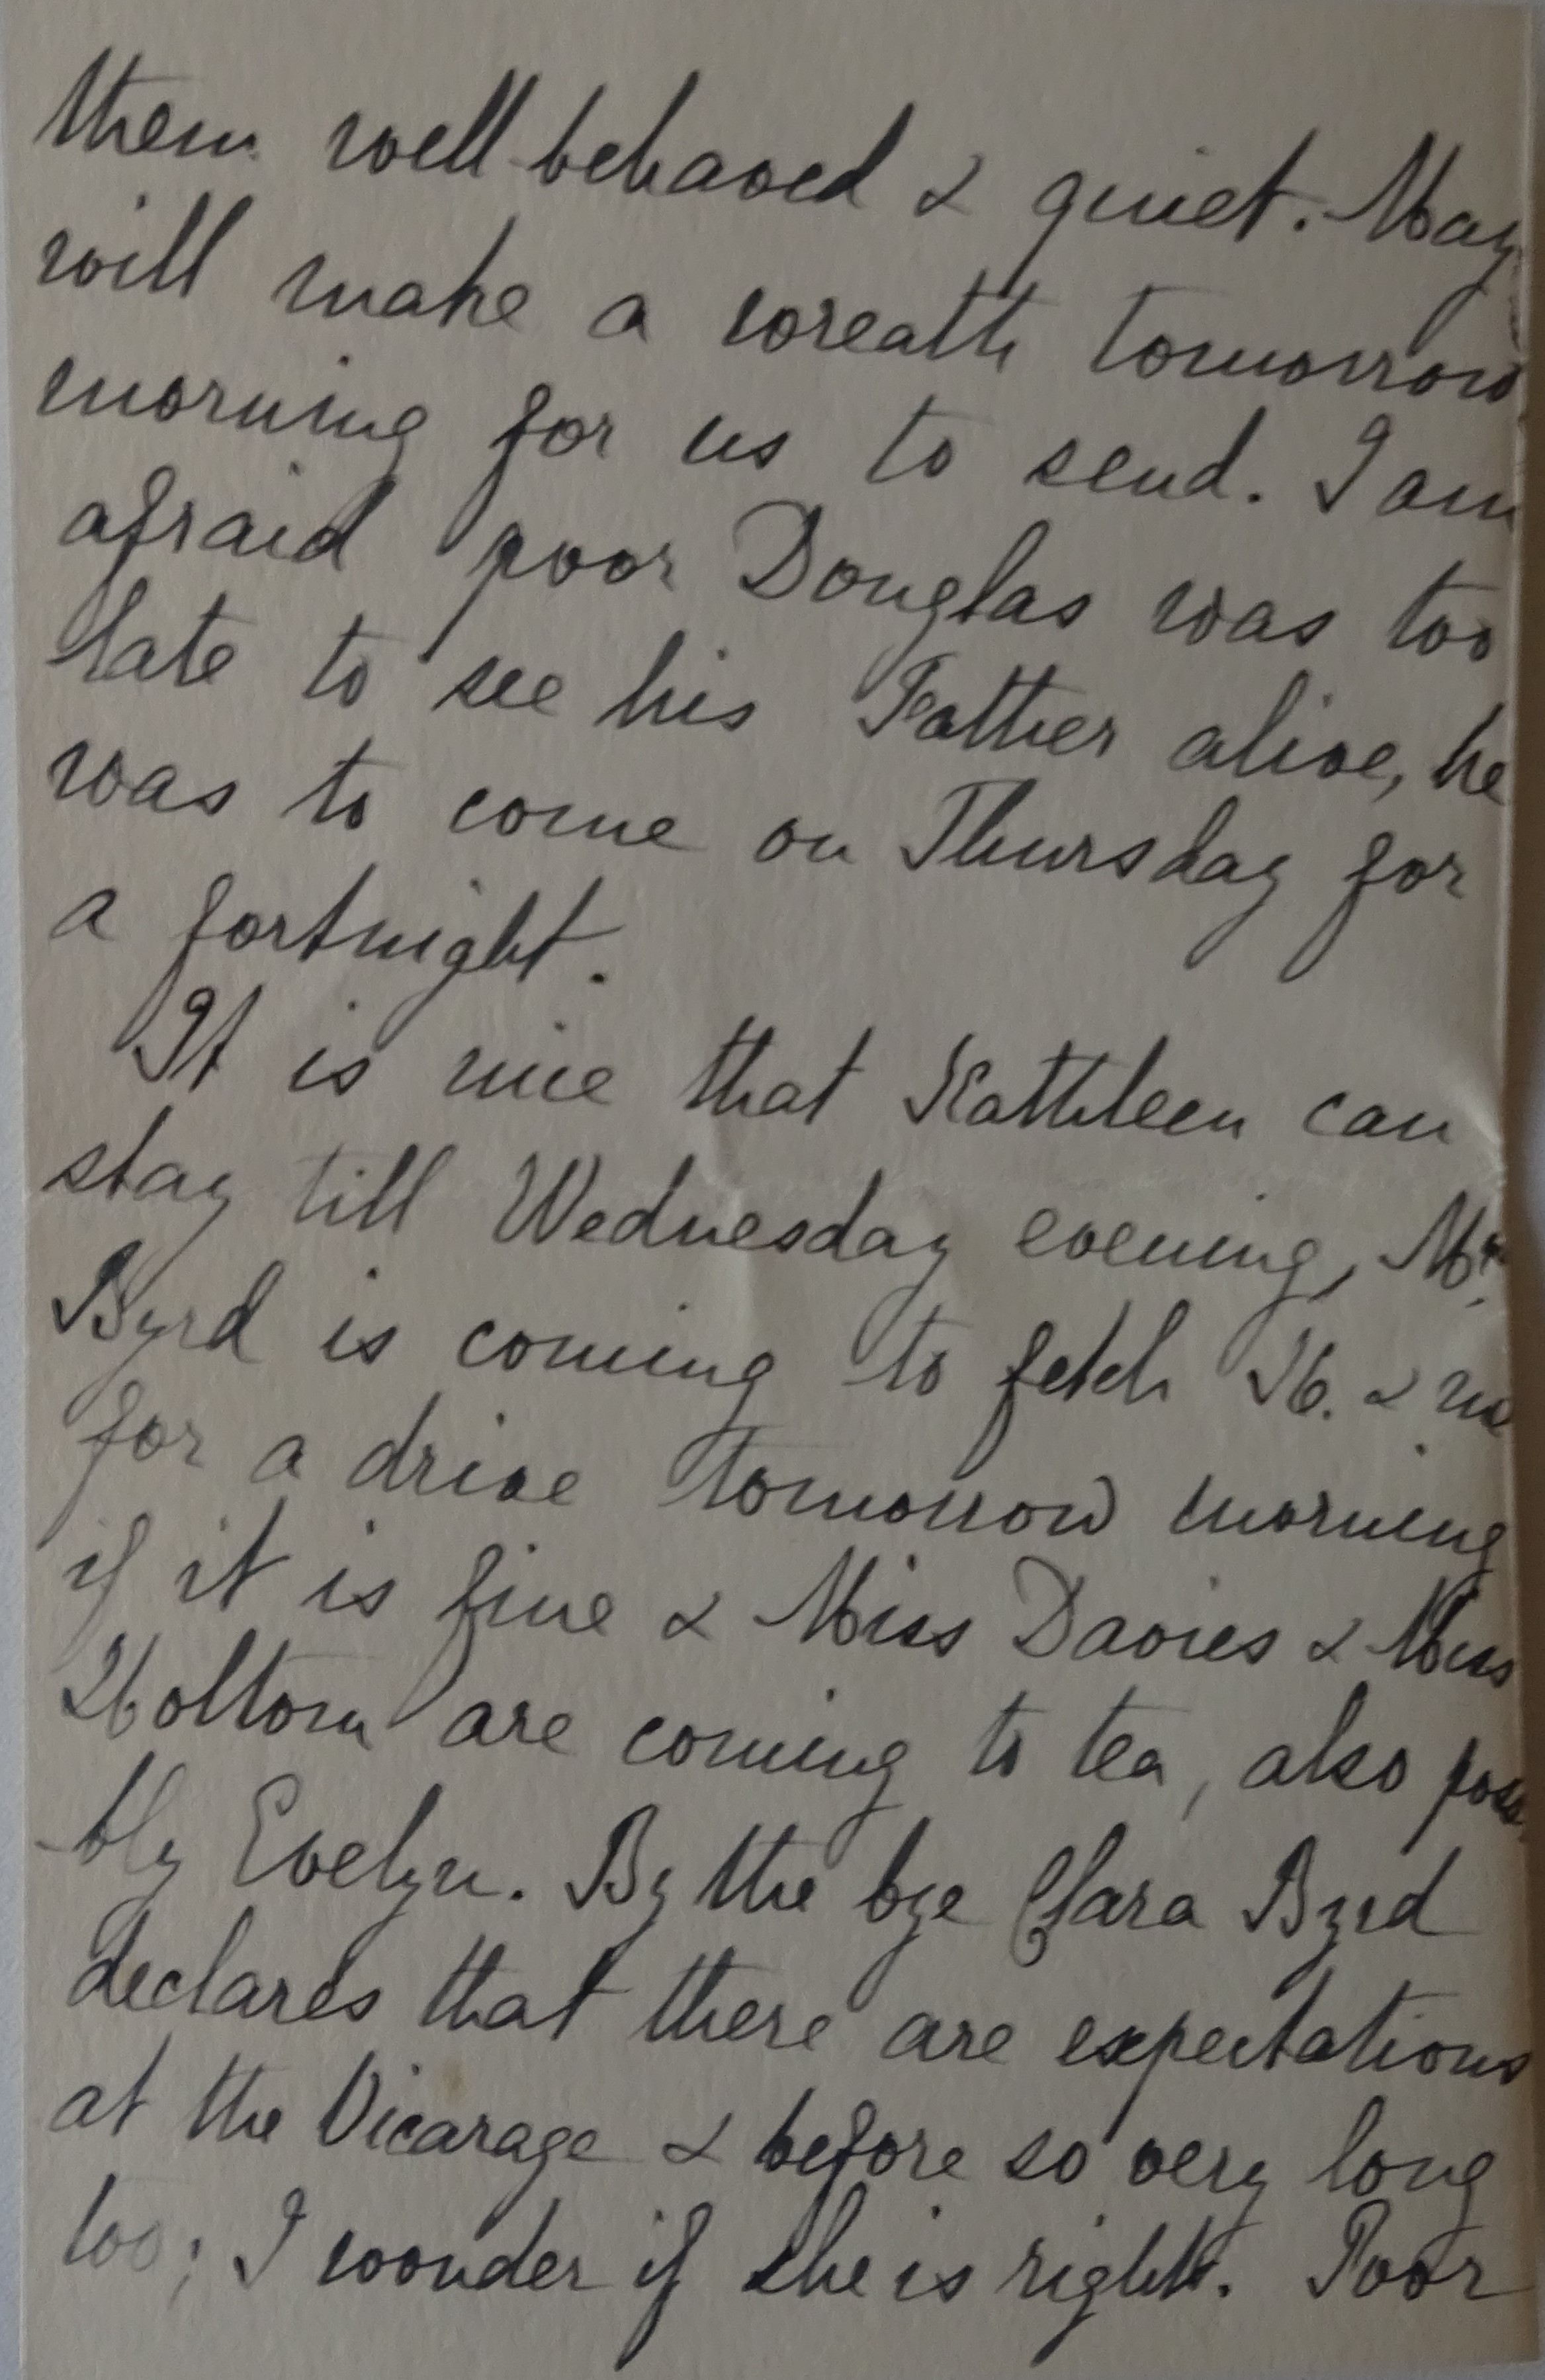 them well behaved & quiet. May
will make a wreath tomorrow
morning for us to send. I am
afraid poor Douglas was too
late to see his Father alive, he
was to come on Thursday for
a fortnight.
It is nice that Kathleen can
stay till Wednesday evening, Mr.
Byrd is coming to fetch K. & me
for a drive tomorrow morning
if it is fine & Miss Davies & Miss
Holtom are coming to tea, also poss
-bly Evelyn. By the bye Clara Byrd
declares that there are expectations
at the Vicarage & before so very long
too; I wonder if she is right. Poor